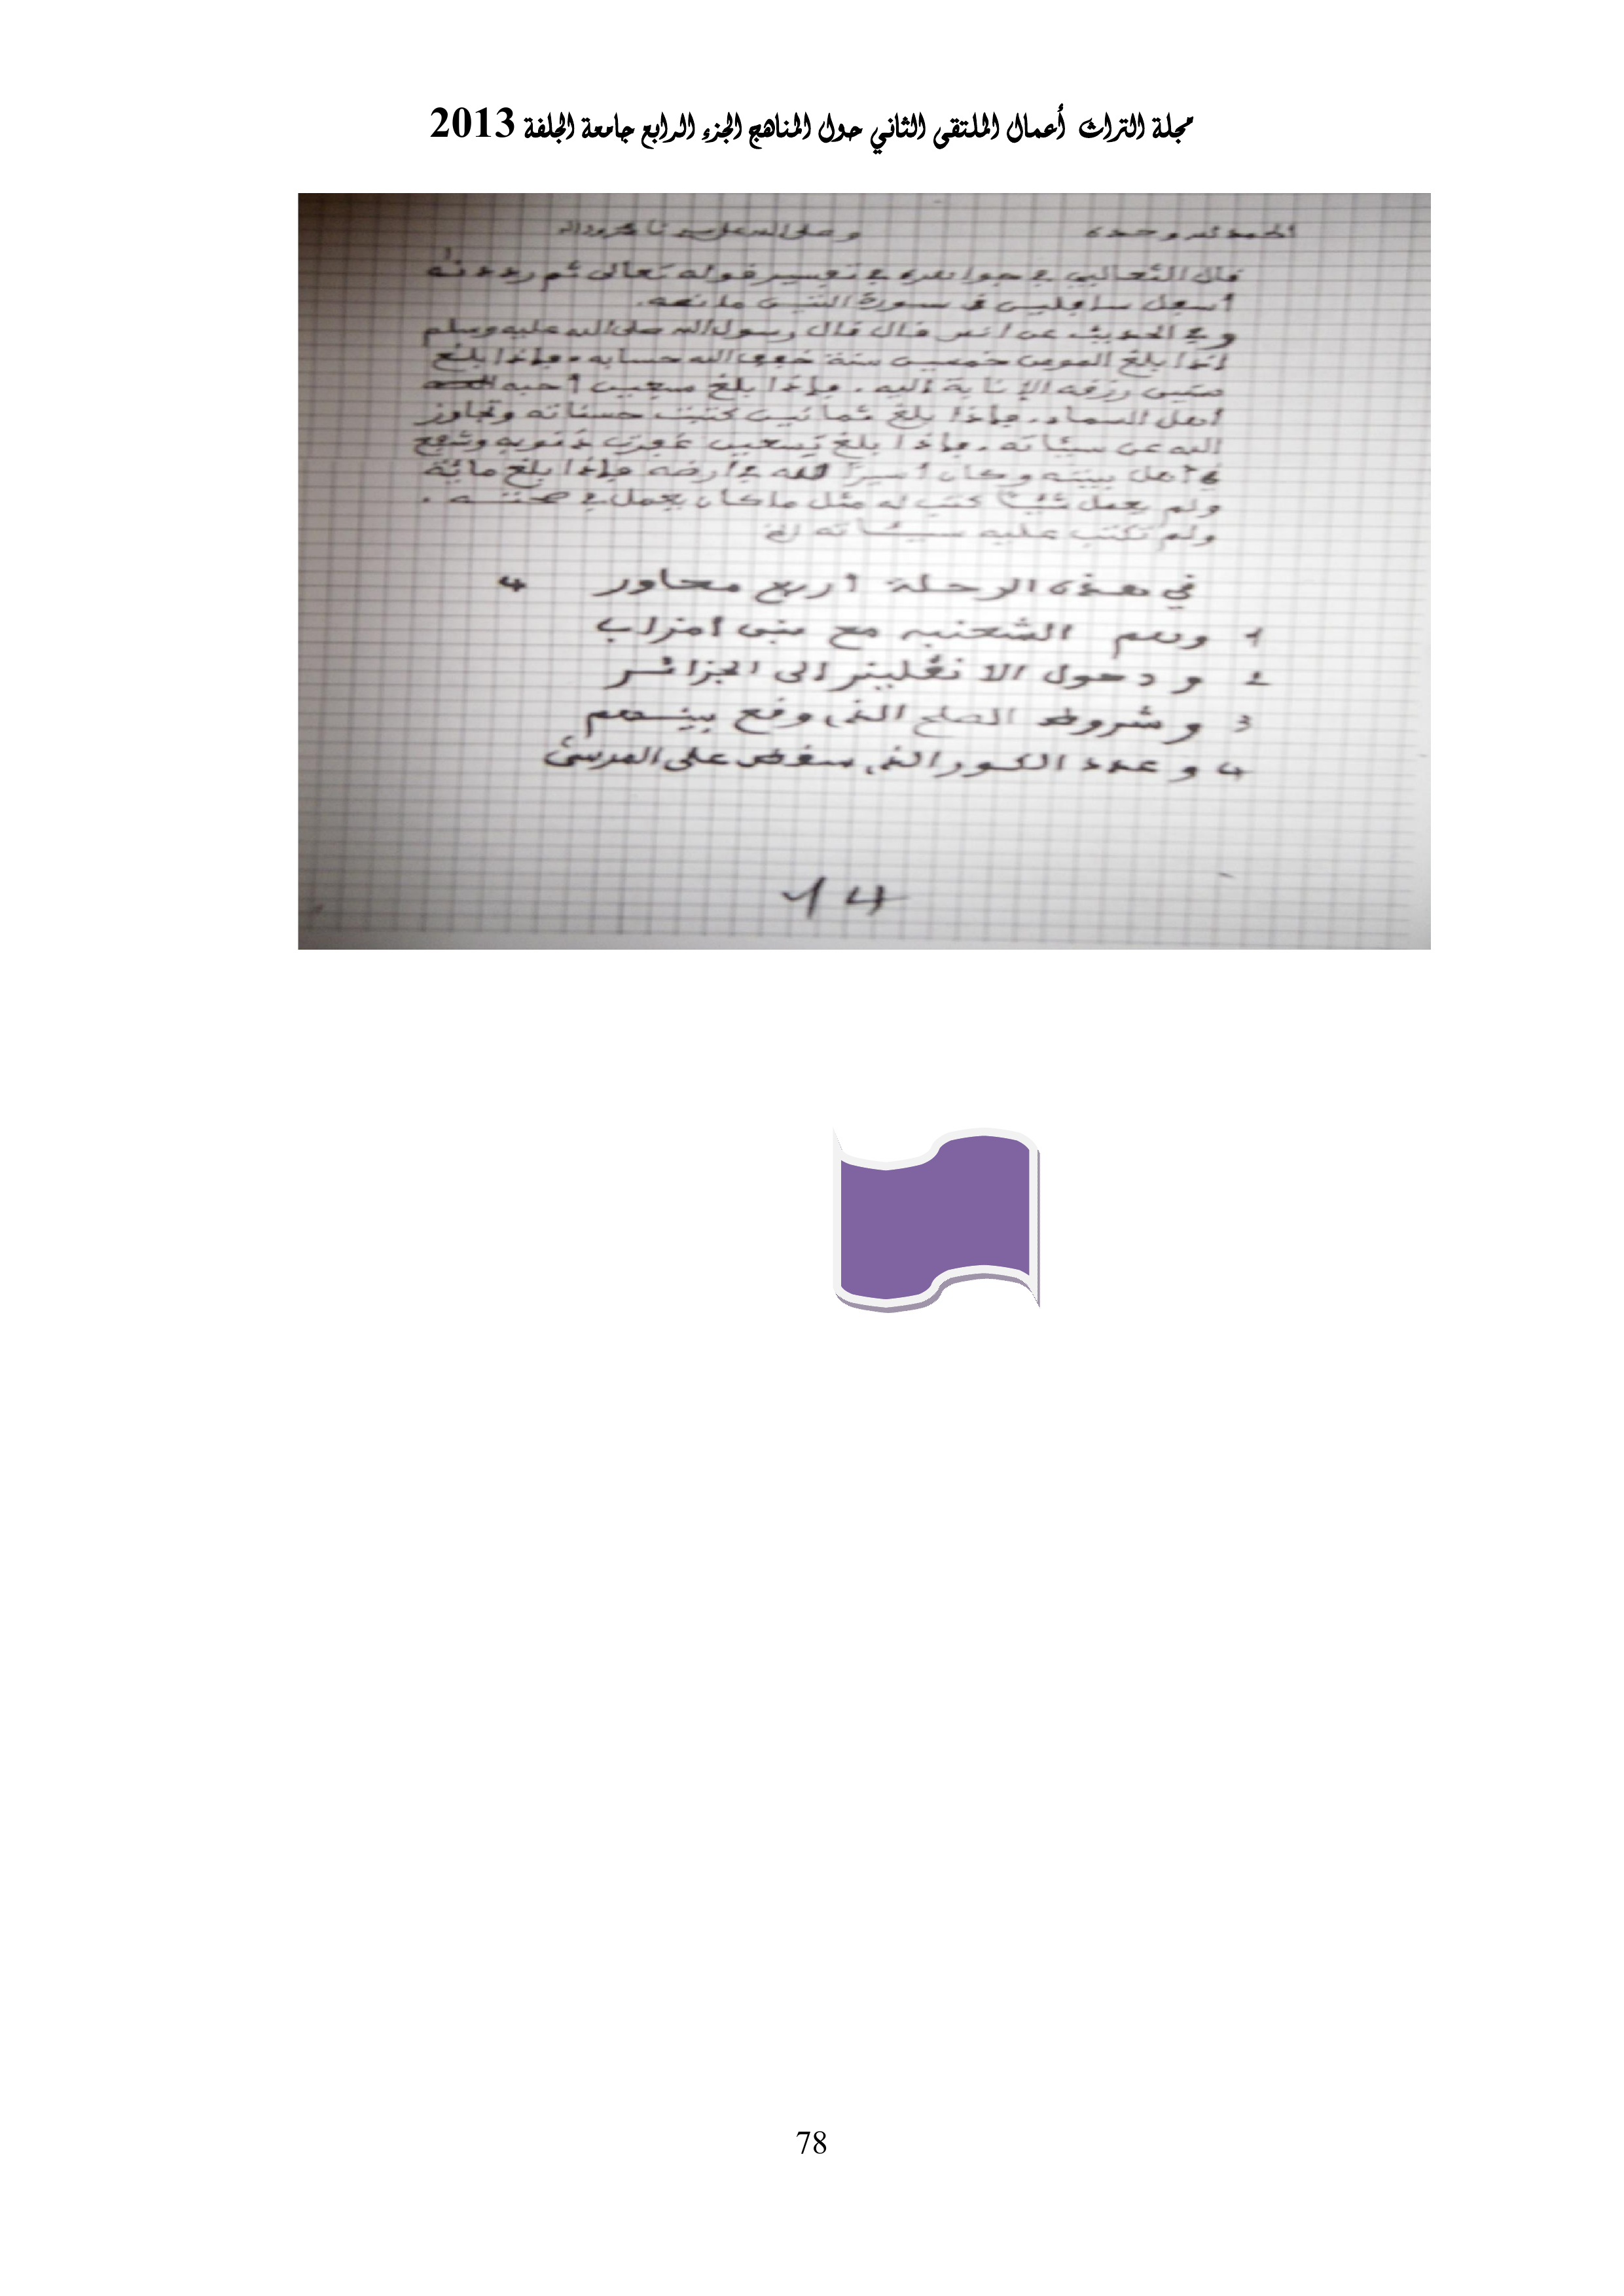 مجلة التراث أعمال الملتقى الثاني حول المناهج الجزء الرابع جامعة الجلفة 2013
الحمد لله وحده وصلى الله على سيدنا
قال الثعالبي في جواهره في تفسير قوله تعالى ثم رددناه
أسفل سافلين في سورة التين ما نصه.
وفي الحديث عن أنس قال قال رسول الله صلى الله عليه وسلم
إذا بلغ المومن خمسين سنة خفف الله حسابه. فإذا بلغ
ستين رزقه الإنابة إليه. فإذا بلغ سبعين أحبه
أهل السماء. فإذا بلغ ثمانين كتبت حسناته وتجاوز
الله عن سيئاته. فإذا بلغ تسعين غفرت ذنوبه وشفع
في أهل بيته وكان أسير الله في أرضه فإذا بلغ مائة
ولم يعمل شيئا كتب له مثل ما كان يعمل في صحته.
ولم تكتب عليه سيئاته الخ
في هذه الرحلة أربع محاور 4
1 وهم الشعنبه مع بني امزاب
2 و دخول الانڤليز الى الجزائر
3 و شروط الصلح الذي وقع بينهم
4 و عدد الكور الذي سقط على المرسى
14
78